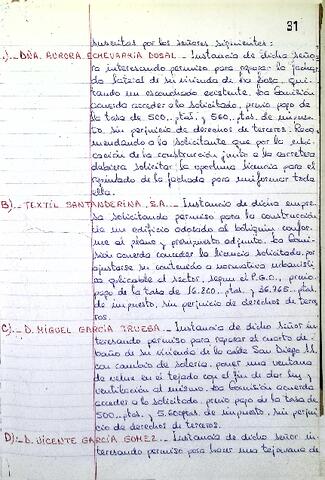 31
suscritas por los señores siguientes:
A).- DÑA. AURORA ECHEVARRIA DOSAL.- Instancia de dicha seño-
ra interesando permiso para reparar la facha-
da lateral de su vivienda de La Losa, qui-
tando un escuchado existente. La Comisión
acuerda acceder a lo solicitado, previo pago de
la tasa de 500,- ptas. y 560,- ptas. de impues-
to, sin perjuicio de derechos de terceros. Reco-
mendando a la solicitante que por la ubi-
cación de la construcción junto a la carretera
deberá solicitar la oportuna licencia para el
repintado de la fachada para uniformar toda
ella.
B).- TEXTIL SANTANDERINA, S.A.- Instancia de dicha empre-
sa solicitando permiso para la construcción
de un edificio adosado al botiquín confor-
me al plano y presupuesto adjunto. La Comi-
sión acuerda conceder la licencia solicitada, por
ajustarse su contenido a normativa urbanísti-
ca aplicable el sector, según el P.G.O., previo
pago de la tasa de 16.200.- ptas. y 36.765.- ptas.
de impuesto, sin perjuicio de derechos de terce-
ros.
C).- D. MIGUEL GARCÍA TRUEBA.- Instancia de dicho señor in-
teresando permiso para reparar el cuarto de
baño de su vivienda de la calle San Diego 11
con cambio de solería, poner una ventana
de velux en el tejado con el fin de dar luz y
ventilación al mismo. La Comisión acuerda
acceder a lo solicitado, previo pago de la tasa de
500,- ptas. y 5.600 ptas. de impuesto, sin perjui-
cio de derechos de terceros.
D).- D. VICENTE GARCÍA GOMEZ.- Instancia de dicho señor in-
teresando permiso para hacer una tejavana de